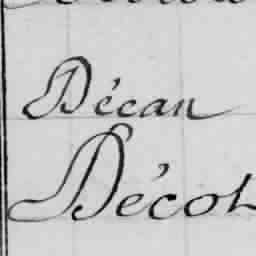 Décan
Décot